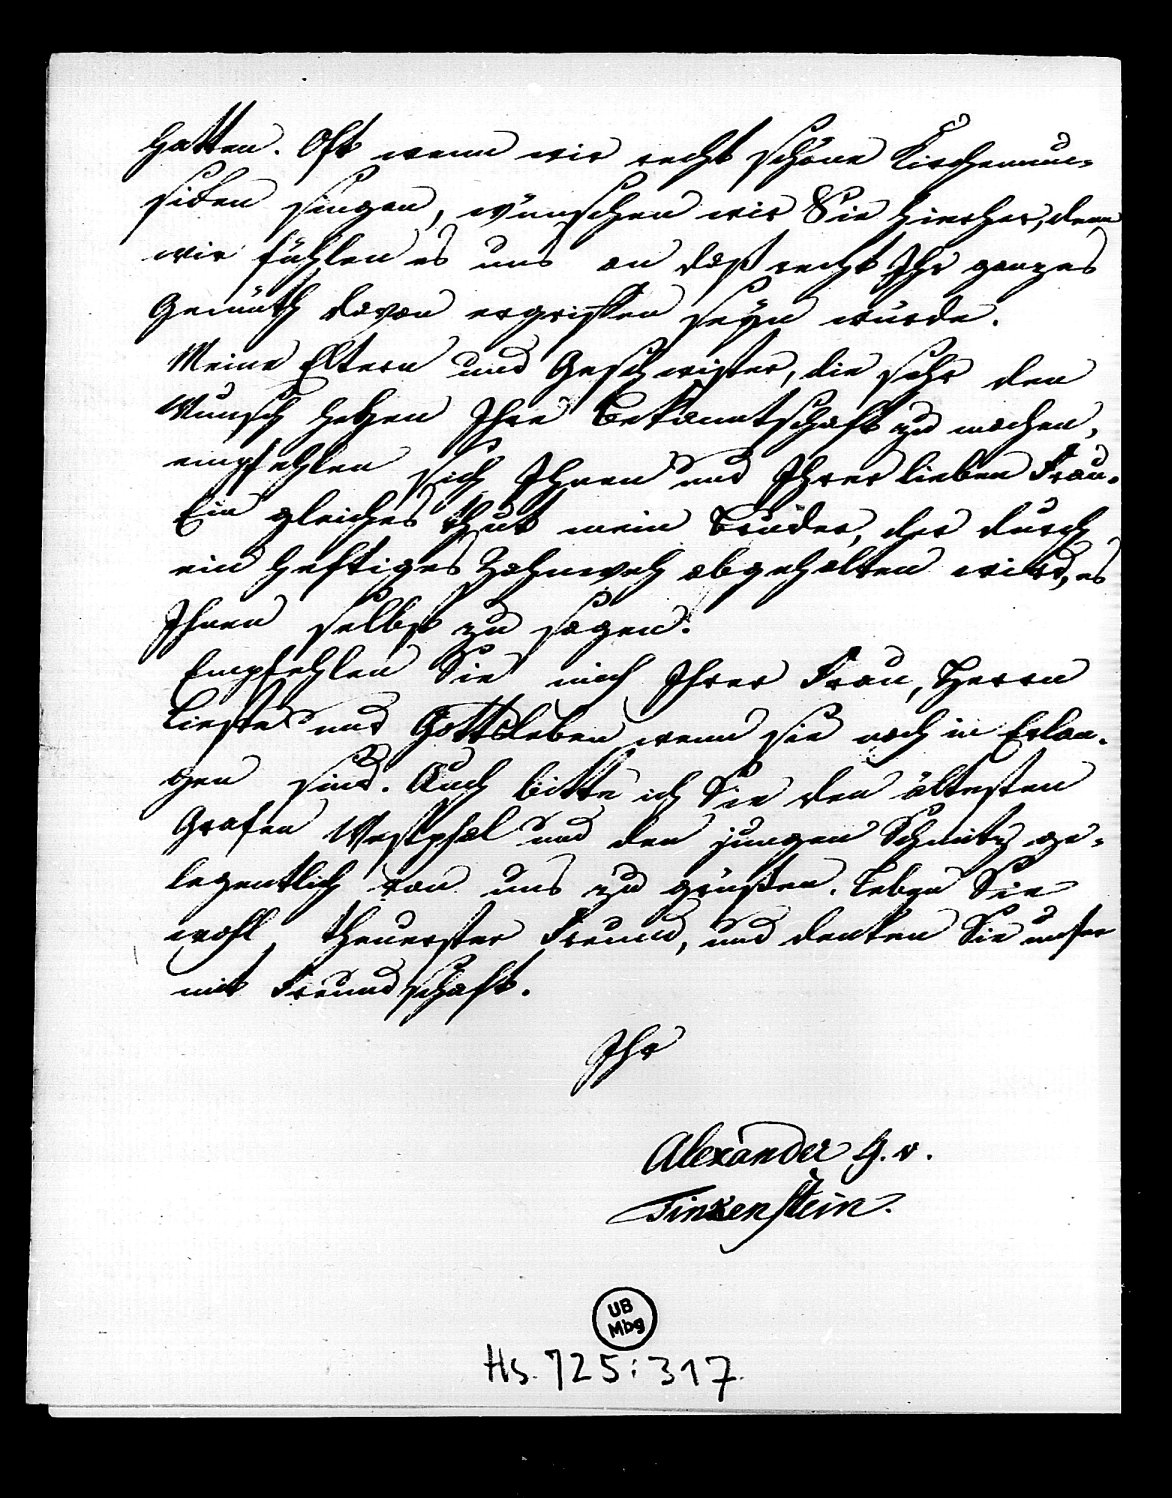 hatten. Oft wenn wir recht schöne Kirchenmu-
siken singen, wünschen wir Sie hierher, denn
wir fühlen es uns an daß recht Ihr ganzes
Gemüth davon ergriffen seyn würde.
Meine Eltern und Geschwister, die sehr den
Wunsch hegen Ihre Bekanntschaft zu machen,
empfehlen sich Ihnen und Ihrer lieben Frau.
Ein gleiches thut mein Bruder, der durch
ein heftiges Zahnweh abgehalten wird, es
Ihnen selbst zu sagen.
Empfehlen Sie mich Ihrer Frau, Herrn
und Gottsleben wenn sie noch in Erlan-
gen sind. Auch bitte ich Sie den ältesten
Grafen Westphal und den jungen Schmitz ge-
legentlich von uns zu grüßen. Leben Sie
wohl, theuerster Freund, und denken Sie unser
mit Freundschaft.
Ihr
Alexander G. v.
Finkenstein.
UB
Mbg
Hs. 725:317